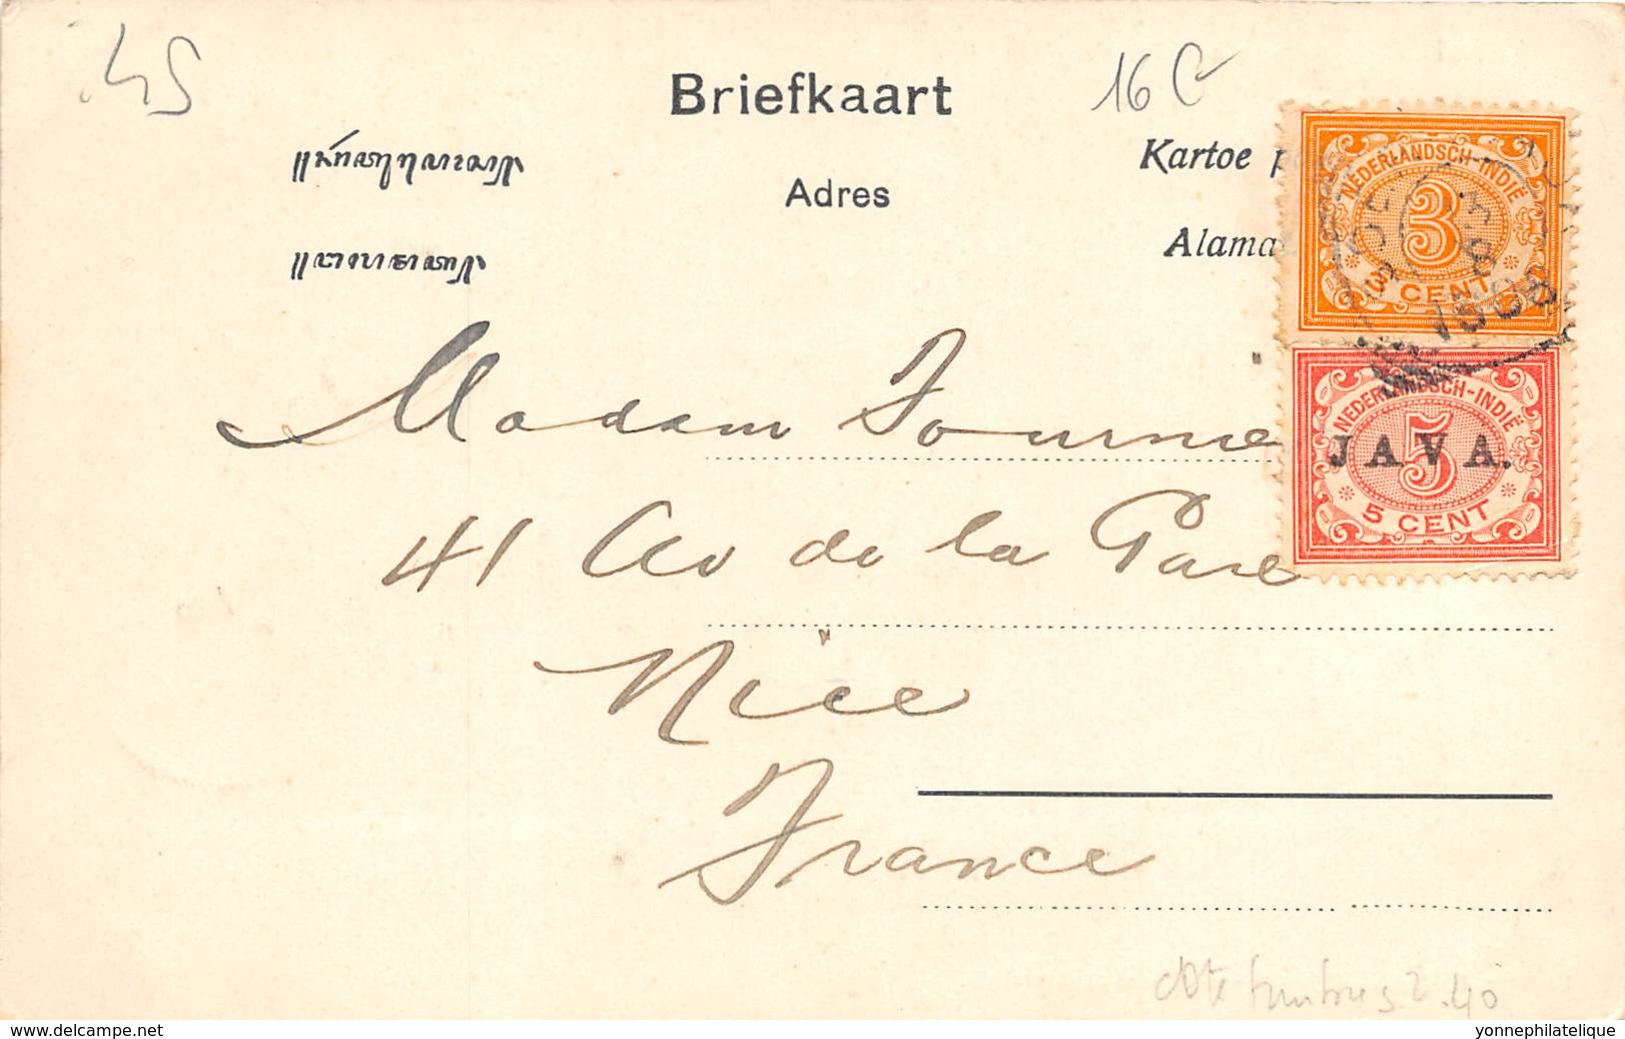 .45
Briefkaart
16 C
Kartoe
Adres
Alama
NEDERLANDSCH-INDIË
3
CENT
1908
Madam Fournie
NEDERLANDSCH-INDIË
5
JAVA.
5 CENT
41 Av de la Gare
Nice
France
côte timbres 2.40
delcampe.net
yonnephilatelique